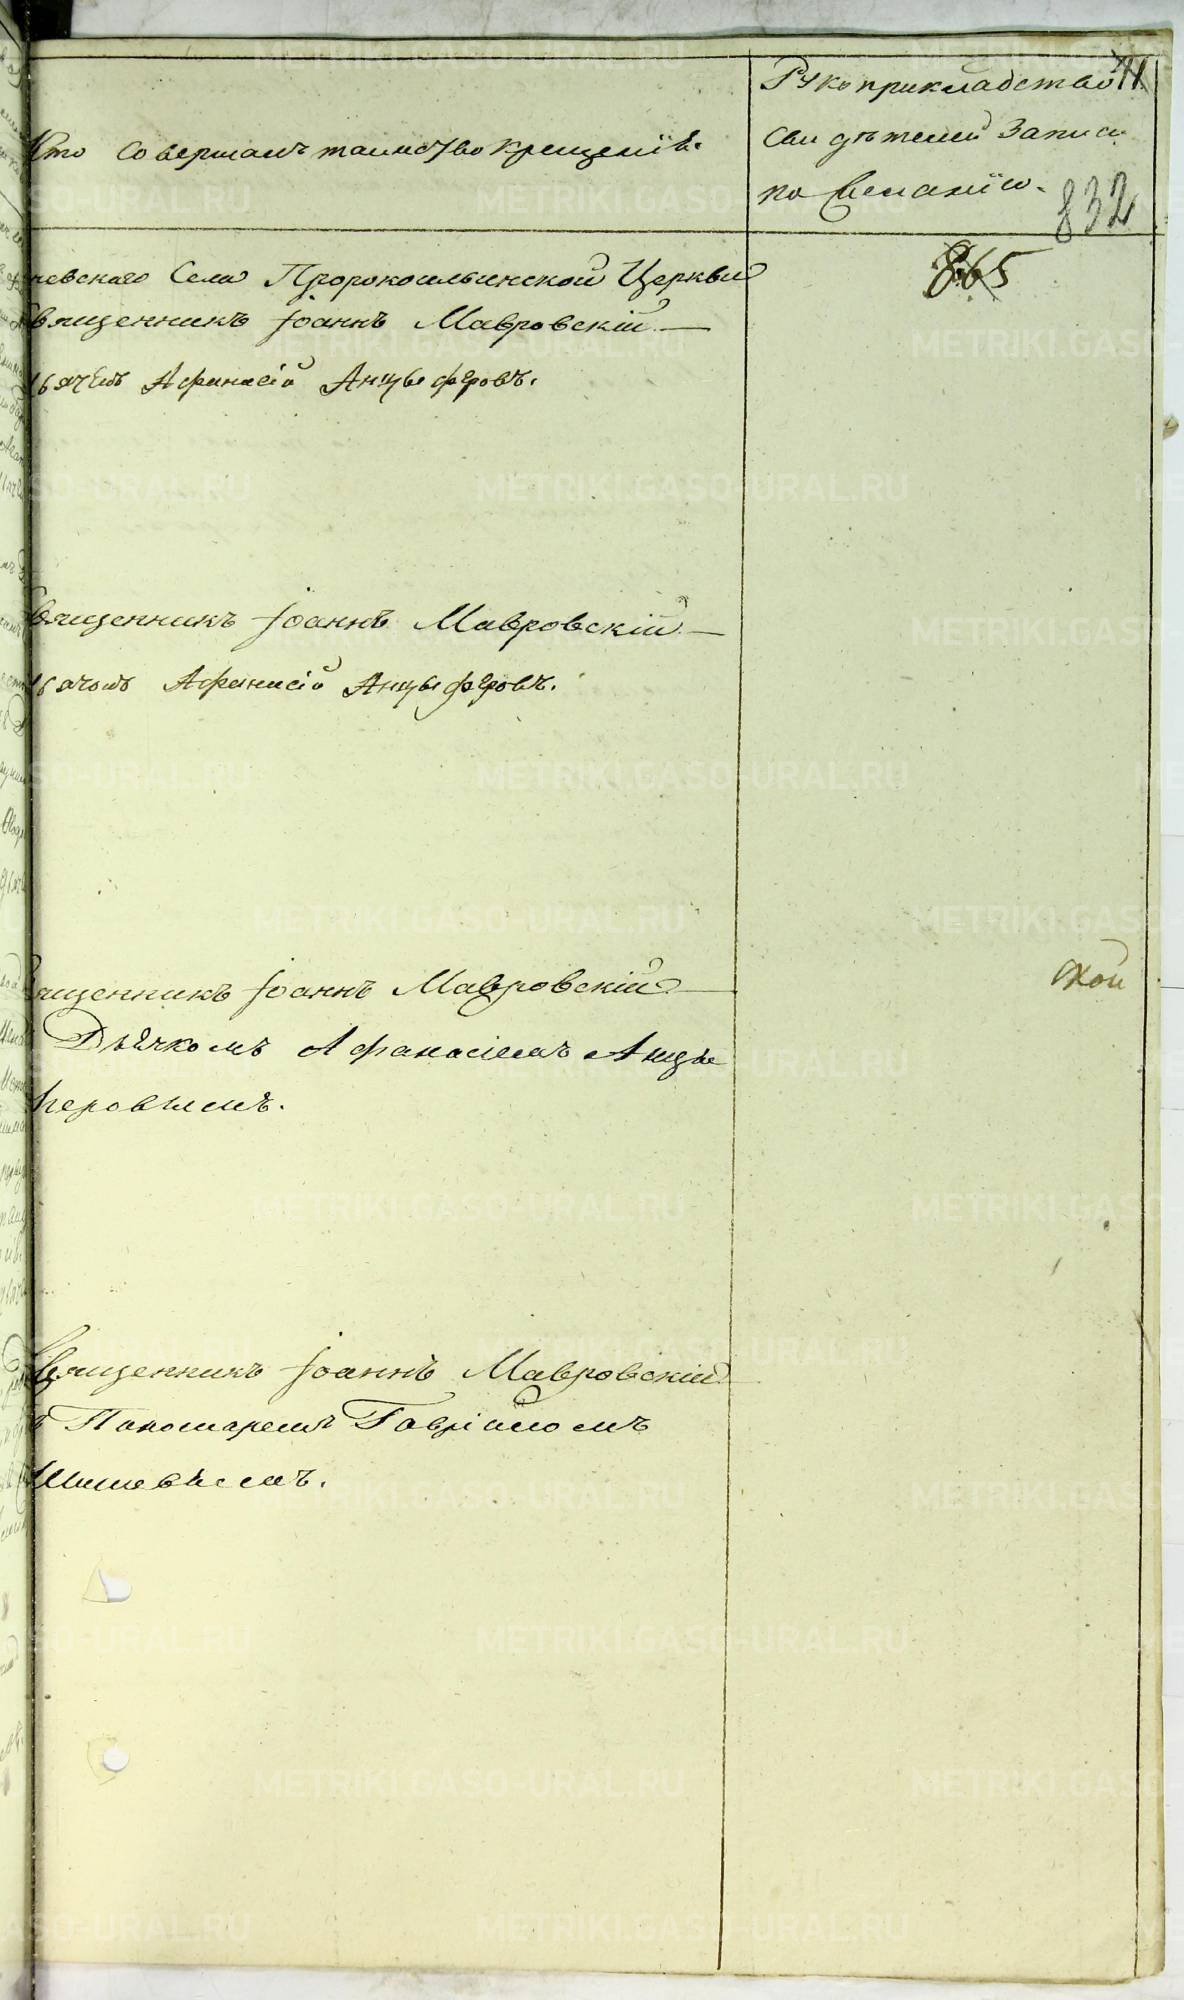 Кто совершалъ таинство крещенія.
Рукоприкладство
свидѣтелей записи
по желанію.
832
865
невскаго Села Пророкоильинской Церкви
Священникъ Іоаннъ Мавровскій
Дьячекъ Афанасій Анцыферовъ.
Священникъ Іоаннъ Мавровскій
Афанасій Анцыферовъ.
Священникъ Іоаннъ Мавровскій
Дьячкомъ Афанасіемъ Анцы
феровымъ.
ской
Священникъ Іоаннъ Мавровскій
Пономаремъ Гавріиломъ
METRIKI.GASO-URAL.RU